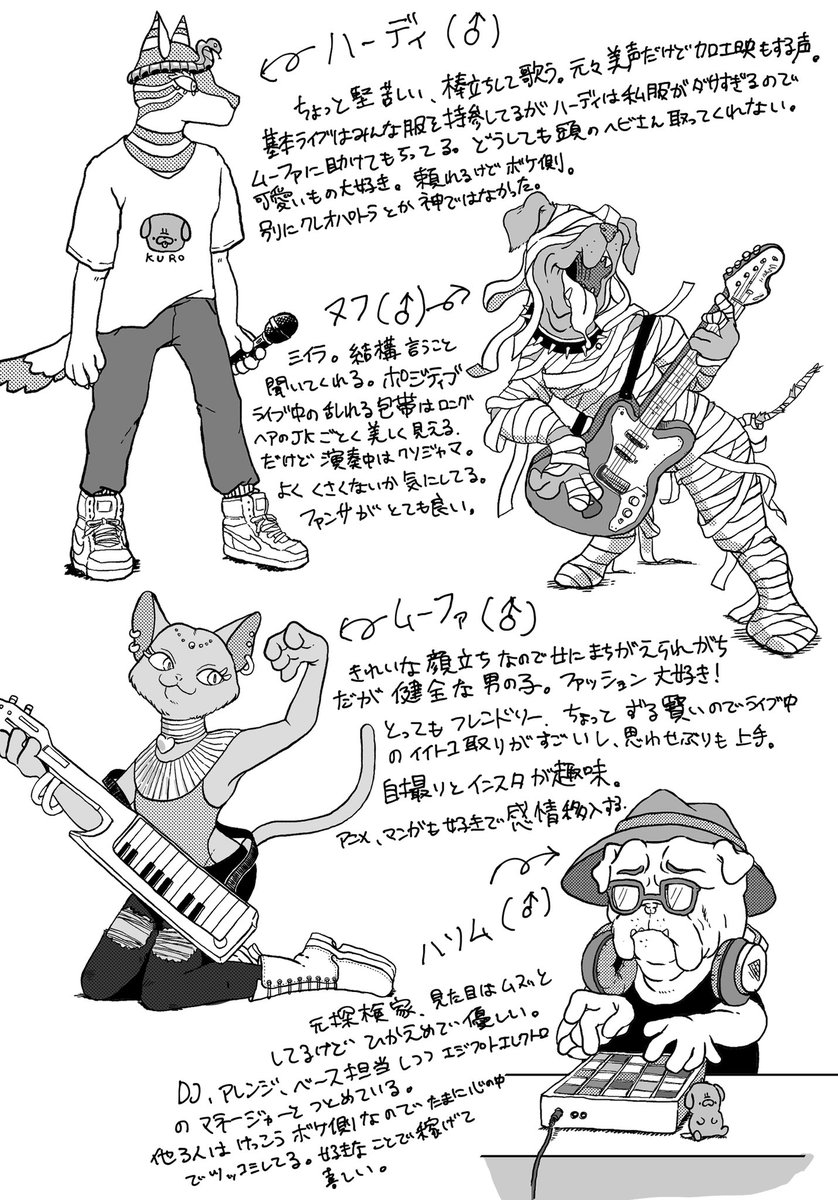 ハーディ(♂)
ちょっと堅苦しい、棒立ちして歌う。元々美声だけど加工映もする声。
基本ライブはみんな服を持参してるがハーディは私服がダサすぎるので
ムーファに助けてもらってる。どうしても頭のヘビさん取ってくれない。
可愛いもの大好き。頼れるけどボケ側。
別にクレオパトラとか神ではなかった。
KURO
ヌフ(♂)
ミイラ。結構言うこと
聞いてくれる。ポジティブ
ライブ中の乱れる包帯はロング
ヘアのJKごとく美しく見える
だけど演奏中はクソジャマ。
よくくさくないか気にしてる。
ファンサがとても良い。
ムーファ(♂)
きれいな顔立ちなので女にまちがえられがち
だが健全な男の子。ファッション大好き!
とってもフレンドリー、ちょってずる賢いのでライブ中
のイイトコ取りがすごいし、思わせぶりも上手。
自撮りとインスタが趣味。
アニメ、マンガも好きで感情移入する。
ハソム(♂)
元探検家、見た目はムスッと
してるけどひかえめで優しい。
DJ、アレンジ、ベース担当しつつエジプトエレクトロ
のマネージャーとつとめている。
他3人はけっこうボケ側なのでたまに心の中
でツッコミしてる。好きなことで稼げて
喜しい。